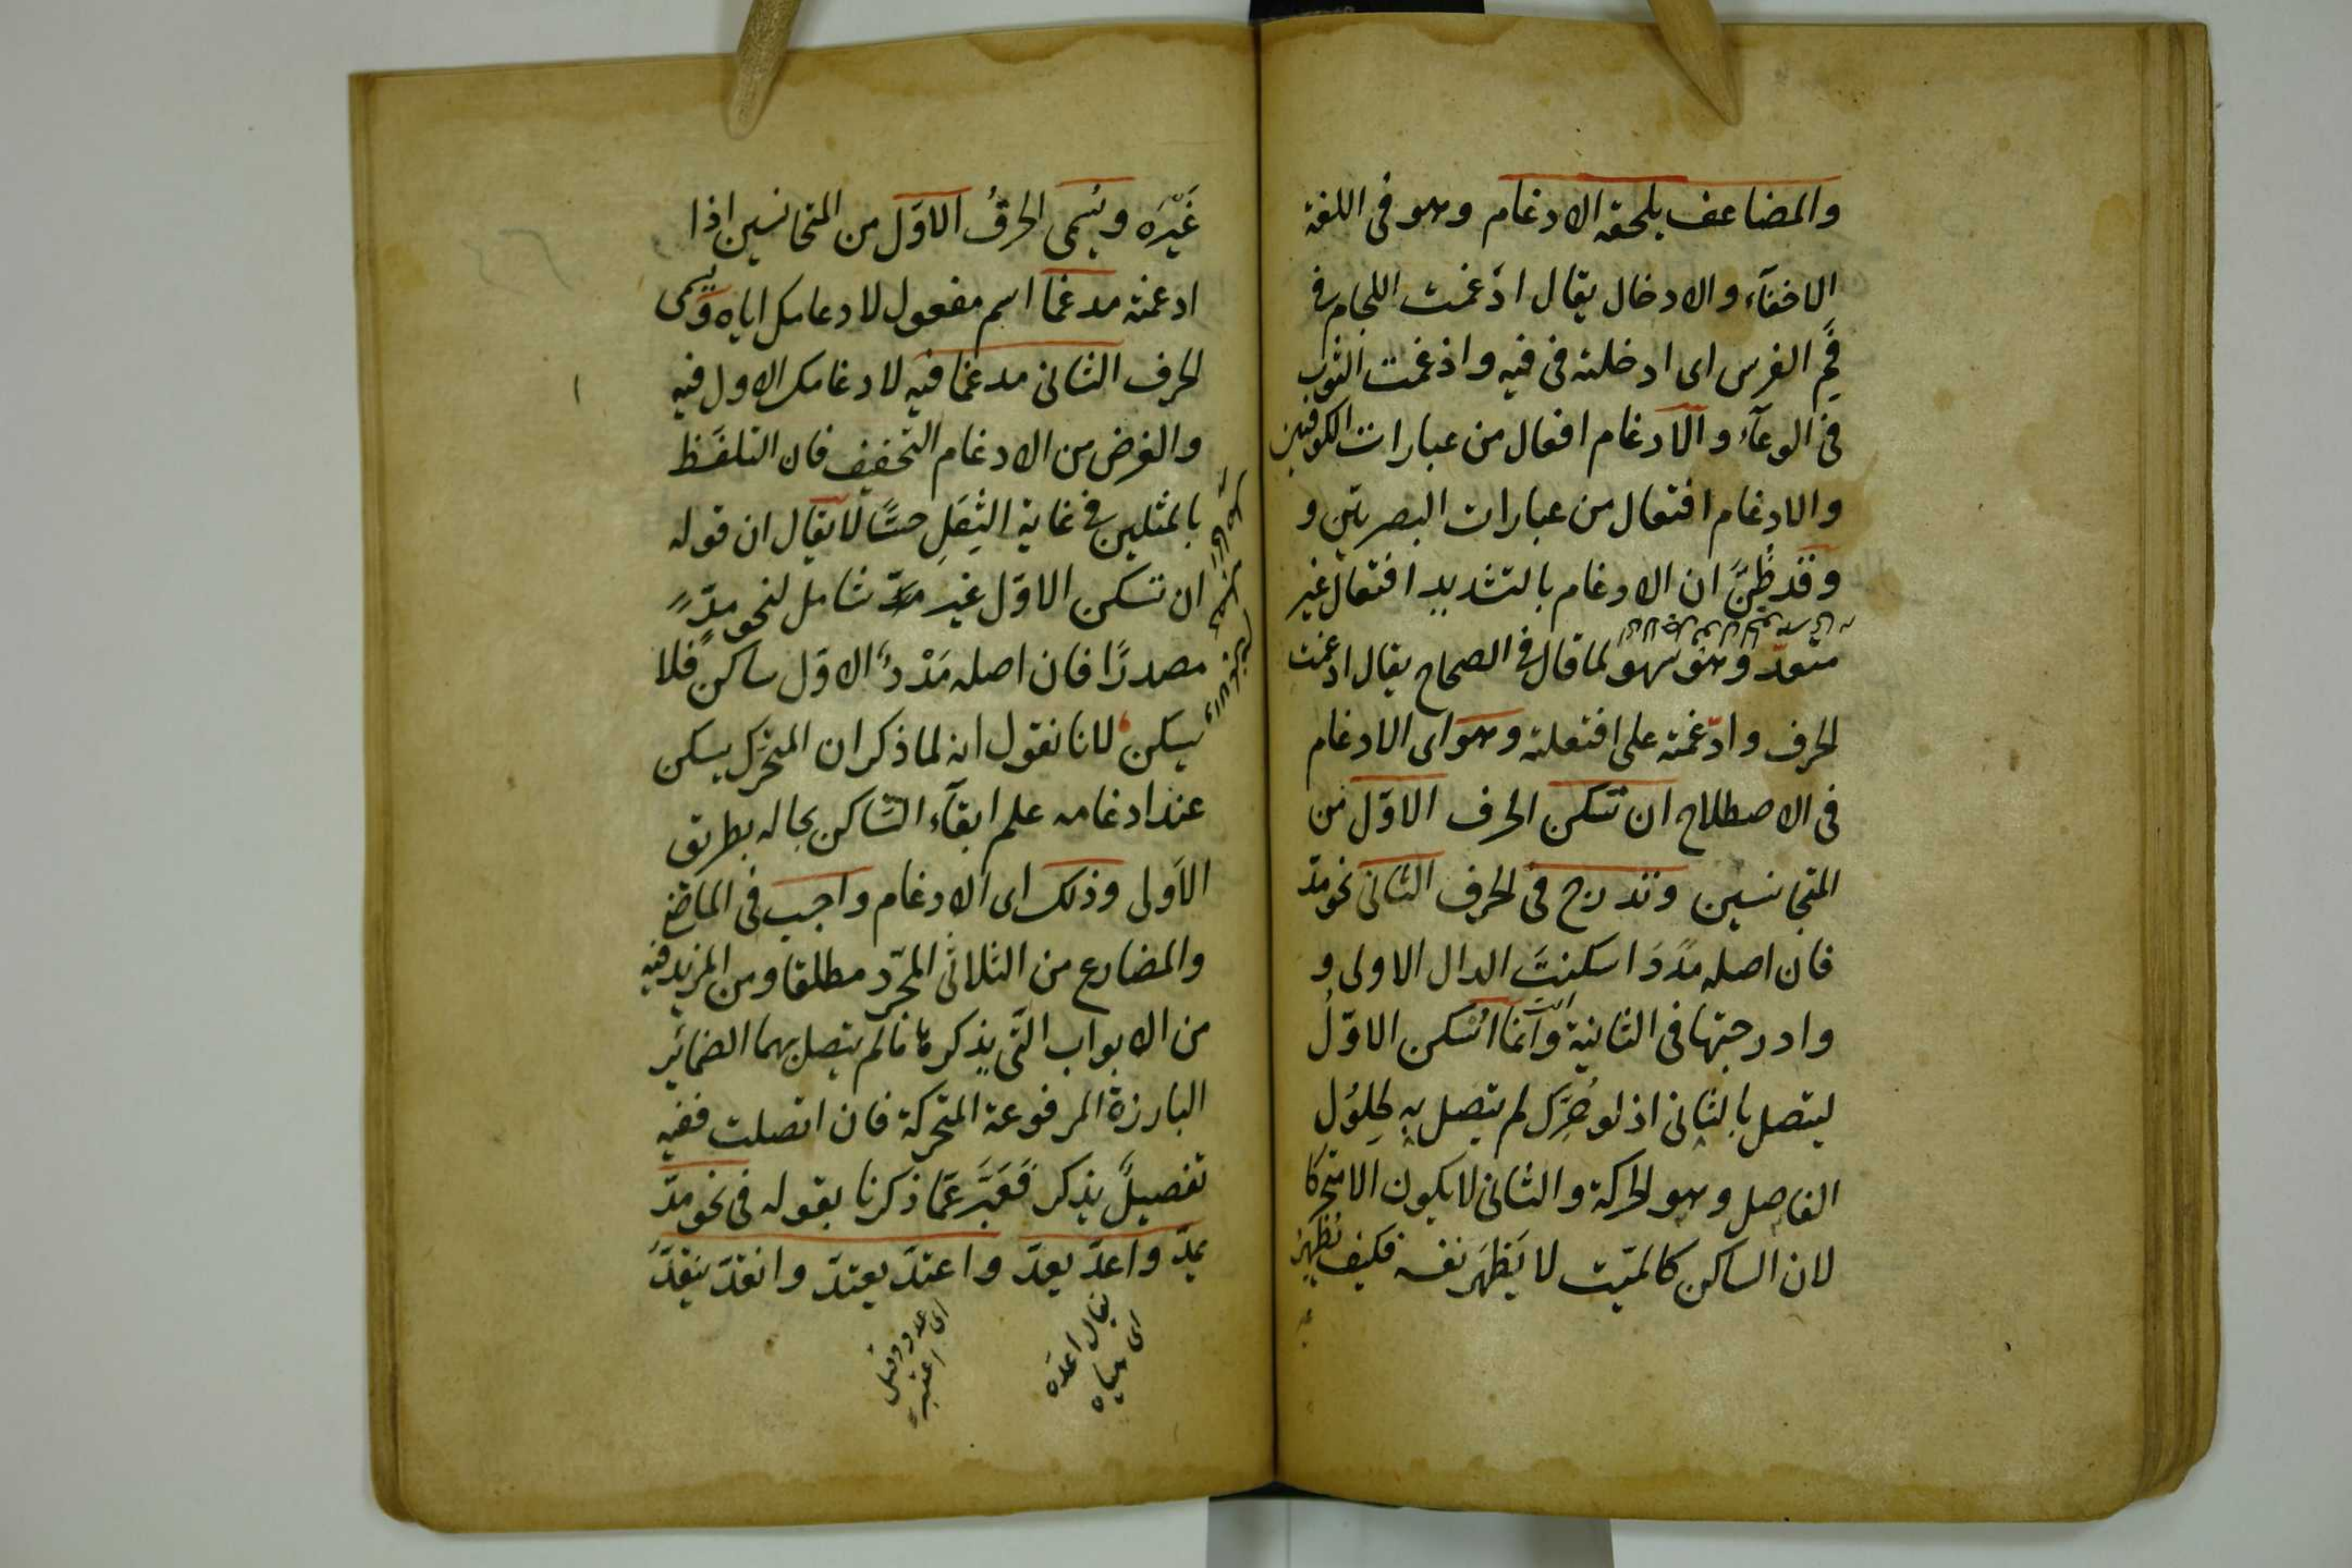 والمضاعف يلحقه الادغام وهو فى اللغة
الاخفآء والادخال يقال ادغمت اللجام فى
فَمِ الفرس اى ادخلته فى فيه وادغمت الثوب
فى الوعآء والادغام افعال من عبارات الكوفيين
والادغام افتعال من عبارات البصريين و
وقد ظُنَّ ان الادغام بالتشديد افتعال غير
متعدّ وهو سهو لما قال فى الصحاح يقال ادغمت
الحرف وادّغمته على افتعلته وهو اى الادغام
فى الاصطلاح ان تسكن الحرف الاوّل من
المتجانسين وتدرج فى الحرف الثانى نحو مدّ
فان اصله مدَدَ اسكنتَ الدال الاولى و
وادرجتها فى الثانية وانما اسكن الاوّلُ
ليتصل بالثانى اذ لو حُرِّك لم يتصل به لحلول
الفاصل وهو الحركة والثانى لا يكون الا متحركا
لان الساكن كالميّت لا يَظهَر نفسه فكيف يُظهِرُ
غَيْرَه ويُسمى الحرفُ الاوّل من المتجانسين اذا
ادغمته مدغما اسم مفعول لادغامك اياه ويسمى
الحرف الثانى مدغما فيه لادغامك الاول فيه
والغرض من الادغام التخفيف فان التلفظ
بالمثلين فى غاية الثِقَلِ حسًّا لا يقال ان قوله
ان تسكن الاوّل غير شامل لنحو مدٍّ
مصدرًا فان اصله مَدْدٌ الاوّل ساكن فلا
يسكن لانا نقول انه لما ذكر ان المتحرّك يسكن
عند ادغامه علم ابقآء الساكن بحاله بطريق
الاَولى وذلك اى الادغام واجب فى الماضى
والمضارع من الثلاثى المجرّد مطلقا ومن المزيد فيه
من الابواب التى يذكرها ما لم يتصل بهما الضمائر
البارزة المرفوعة المتحركة فان اتصلت ففيه
تفصيلٌ يذكر فَعَبَّرَ عمّا ذكرنا بقوله فى نحو مدّ
يمدّ واعدّ يعدّ واعتدّ يعتدّ وانقدّ ينقدّ
يقال اعدّه
اى هياه